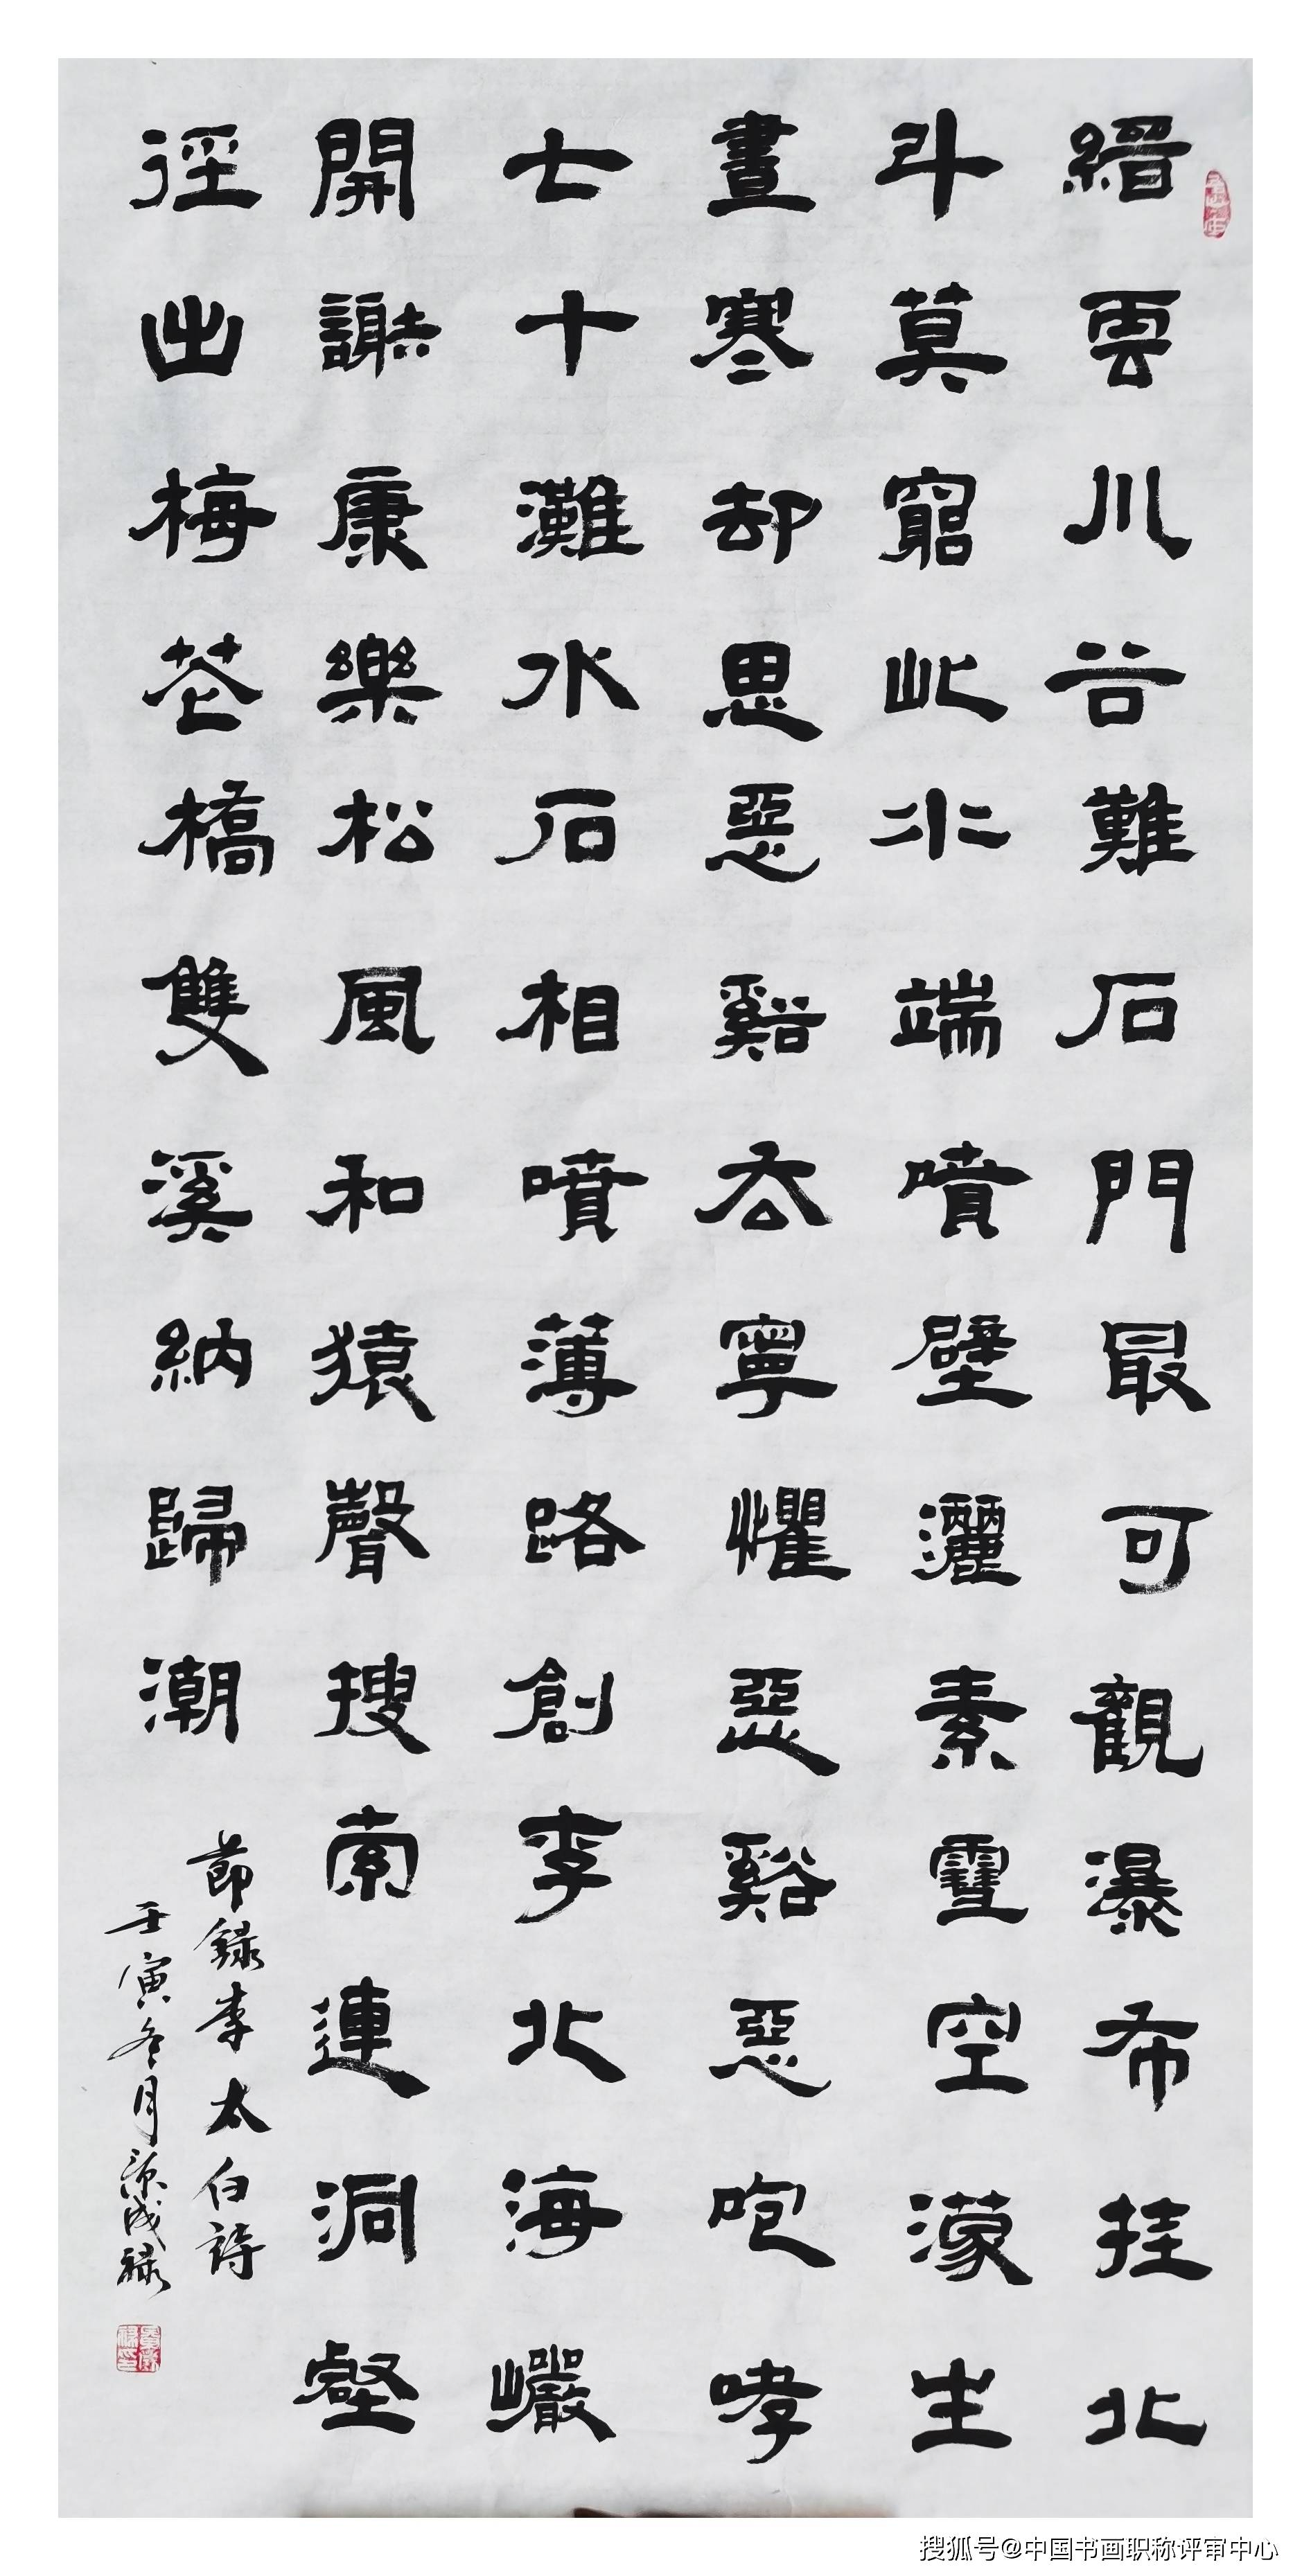 縉雲川谷難石門最可觀瀑布挂北
斗莫窮此水端噴壁灑素雪空濛生
晝寒却思惡谿去寧懼惡谿惡咆哮
七十灘水石相噴薄路創李北海巖
開謝康樂松風和猿聲搜索連洞壑
徑出梅花橋雙溪納歸潮
節錄李太白詩
壬寅冬月
成祿
搜狐号@中国书画职称评审中心